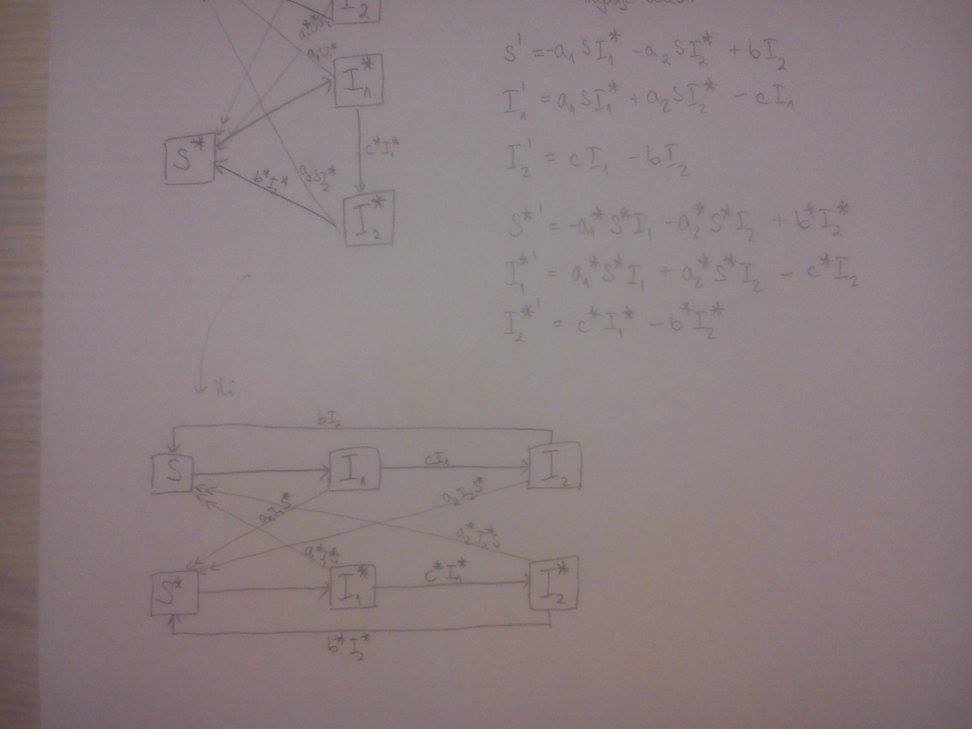 I₂
Iₙ*
S*
c*I₁*
b*I₂*
a₂SI₂*
I₂*
S' = -a₁SI₁* - a₂SI₂* + bI₂
I₁' = a₁SI₁* + a₂SI₂* - cI₁
I₂' = cI₁ - bI₂
S*' = -a₁*S*I₁ - a₂*S*I₂ + b*I₂*
I₁*' = a₁*S*I₁ + a₂*S*I₂ - c*I₂
I₂*' = c*I₁* - b*I₂*
bI₂
S
I₁
cI₁
I₂
a₂I₂S*
a₂*I₂*S
S*
I₁*
c*I₁*
I₂*
b*I₂*